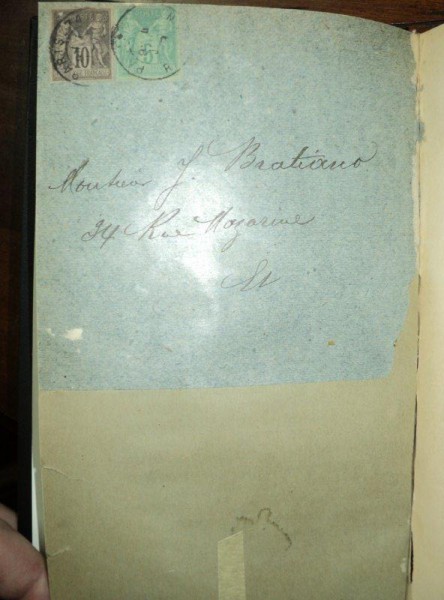 10 5
PARIS
Monsieur J. Bratiano
24 Rue Mazarine